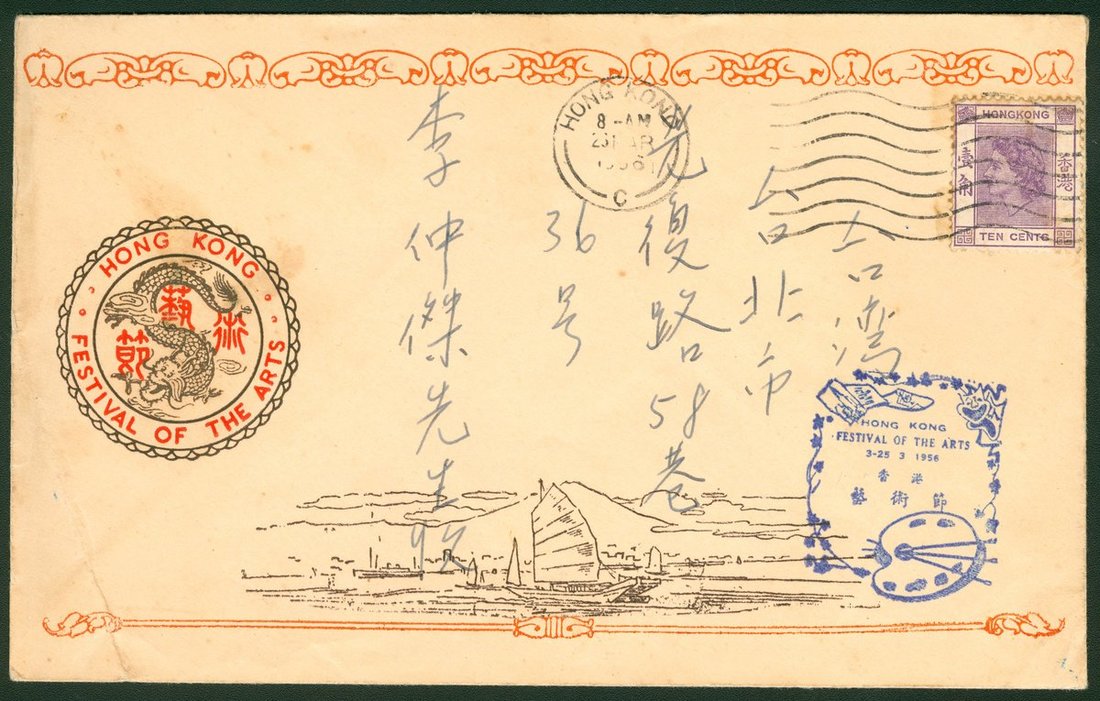 HONG KONG
8-AM
1956
C
HONGKONG
壹角
香港
TEN CENTS
台灣
台北市
光復路58巷
36号
李仲傑先生收
HONG KONG
藝術節
FESTIVAL OF THE ARTS
HONG KONG
FESTIVAL OF THE ARTS
3-25 3 1956
香港
藝術節